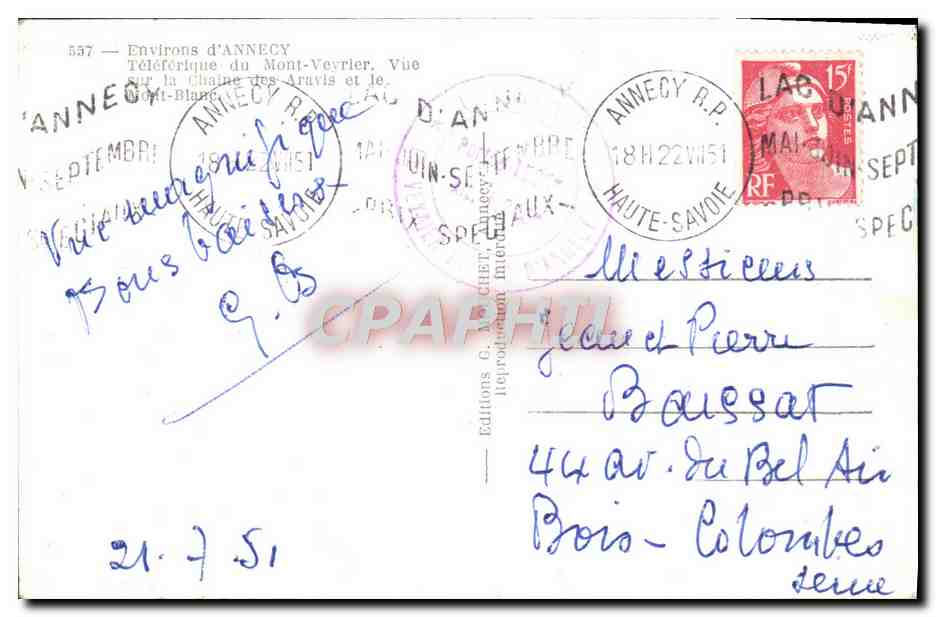 557 — Environs d'ANNECY
Téléférique du Mont-Veyrier. Vue
sur la Chaîne des Aravis et le
Mont-Blanc.
Vue magnifique
Bons baisers
G. B
21. 7. 51
— Editions G. M CHET, Annecy —
Reproduction interdite
D'ANNECY
SEPTEMBRE
SPECIAUX
ANNECY R.P.
18H 22 VII 51
HAUTE-SAVOIE
LAC D'ANNECY
MAI-JUIN-SEPTEMBRE
PRIX SPECIAUX
ANNECY R.P.
18H22 VII 51
HAUTE-SAVOIE
LAC D'ANN
MAI-JUIN-SEPT
PRI SPEC
15F
POSTES
RF
CPAPHIL
Messieurs
Jean et Pierre
Baussat
44 av. du Bel Air
Bois-Colombes
Seine